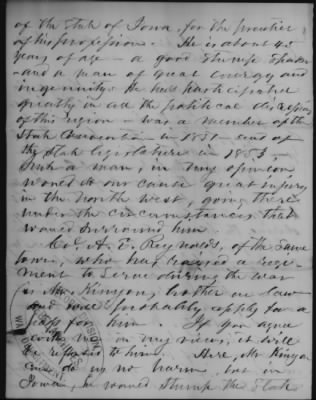 of the State of Iowa, for the practice
of his profession. He is about 45
years of age – a good stump speaker
– and a man of great energy and
ingenuity. He has participated
greatly in all the political
of this region – was a member of the
State Convention – in 1851 – and of
the State legislature in 1853,
Such a man, in my opinion,
would do our cause great injury
in the North West, going there
under the circumstances that
would surround him.
Col. A. E. Reynolds, of the same
town, who has raised a regi-
ment to serve during the war
is Mr. Kinyon, brother in law
and will probably apply for a
pass for him. If you agree
with me in my views, it will
be refused to him. Here, Mr. Kinyon
can do us no harm, but in
Iowa, he would stump the State